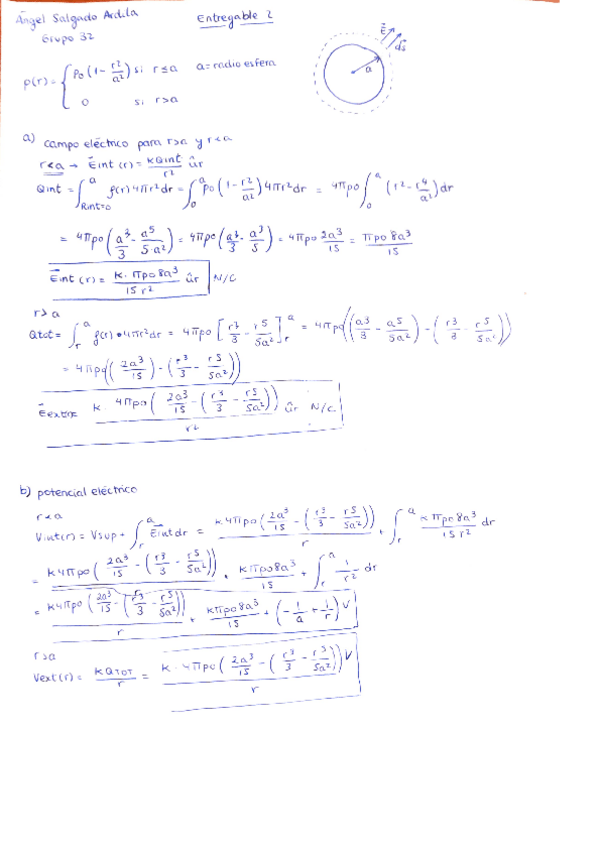 Ángel Salgado Ardila Entregable 2
Grupo 32
ρ(r) = { ρ0 (1 - r²/a²) si r ≤ a a = radio esfera
0 si r > a
E ds
a
a) campo eléctrico para r>a y r<a
r<a → Eint (r) = KQint/r² ûr
Qint = ∫_{Rint=0}^{a} ρ(r) 4πr²dr = ∫_0^a ρ0 (1 - r²/a²) 4πr²dr = 4πρ0 ∫_0^a (r² - r⁴/a²) dr
= 4πρ0 (a³/3 - a⁵/5·a²) = 4πρ0 (a³/3 - a³/5) = 4πρ0 2a³/15 = πρ0 8a³/15
Eint (r) = K · πρ0 8a³/15 r² ûr N/C
r>a
Qtot = ∫_r^a ρ(r) · 4πr²dr = 4πρ0 [r³/3 - r⁵/5a²]_r^a = 4πρ0 ((a³/3 - a⁵/5a²) - (r³/3 - r⁵/5a²))
= 4πρ0 ((2a³/15) - (r³/3 - r⁵/5a²))
Eext = K · 4πρ0 (2a³/15 - (r³/3 - r⁵/5a²))/r² ûr N/C
b) potencial eléctrico
r<a
Vint(r) = Vsup + ∫_r^a Eint dr = K 4πρ0 (2a³/15 - (r³/3 - r⁵/5a²))/r + ∫_r^a Kπρ0 8a³/15 r² dr
= K 4πρ0 (2a³/15 - (r³/3 - r⁵/5a²))/r · Kπρ0 8a³/15 + ∫_r^a 1/r² dr
= K 4πρ0 (2a³/15 - (r³/3 - r⁵/5a²))/r + Kπρ0 8a³/15 + (-1/a + 1/r) V
r>a
Vext(r) = KQTOT/r = K · 4πρ0 (2a³/15 - (r³/3 - r³/5a²))/r V